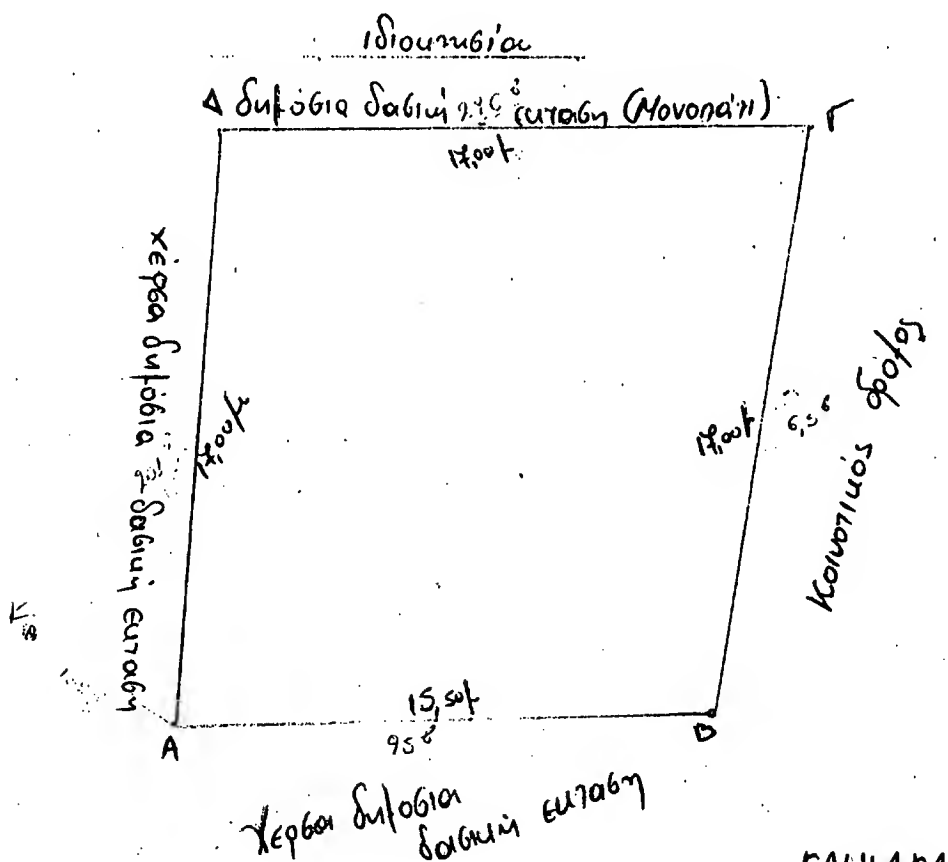 ιδιοκτησία
Δ δημόσια δασική έκταση (Μονοπάτι) Γ
17,00μ
χέρσα δημόσια δασική έκταση
17,00μ
17,00μ
6,5⁶
Κοινοτικός δρόμος
15,50μ
95⁶
Α
Β
χέρσα δημόσια
δασική έκταση